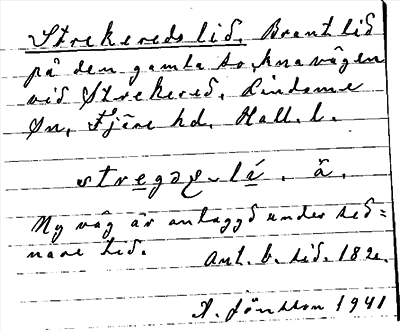 Strekereds lid. Brant lid
på den gamla so,knavägen
vid Strekered, Lindome
sn, Fjäre hd, Hall. l.
ä.
Ny väg är anlaggd under sed=
nare tid. Ant. b. sid. 182.
A. Jönsson 1941